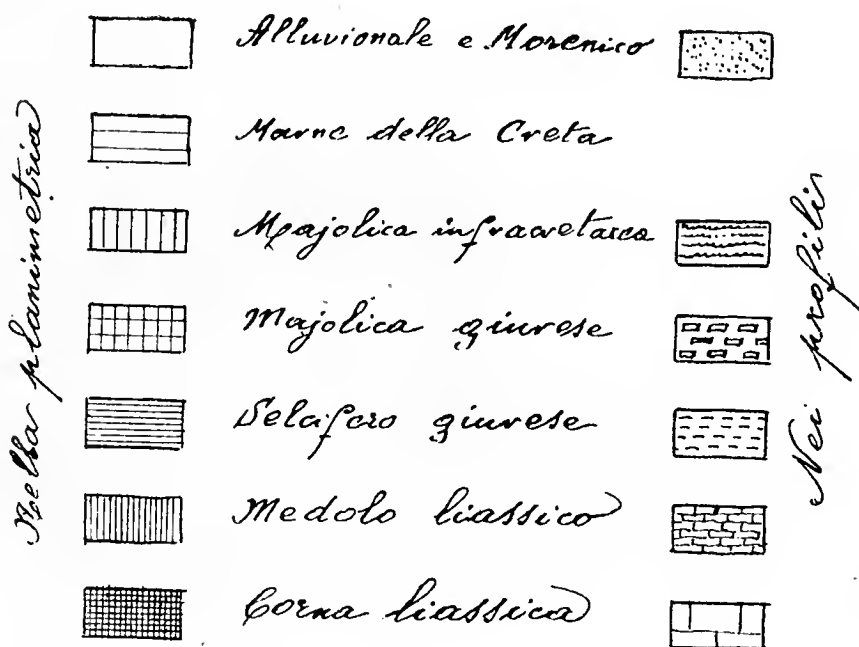 Nella planimetria
Alluvionale e Morenico
Marne della Creta
Majolica infracretacea
Majolica giurese
Selcifero giurese
Medolo liassico
Corna liassica
Nei profili